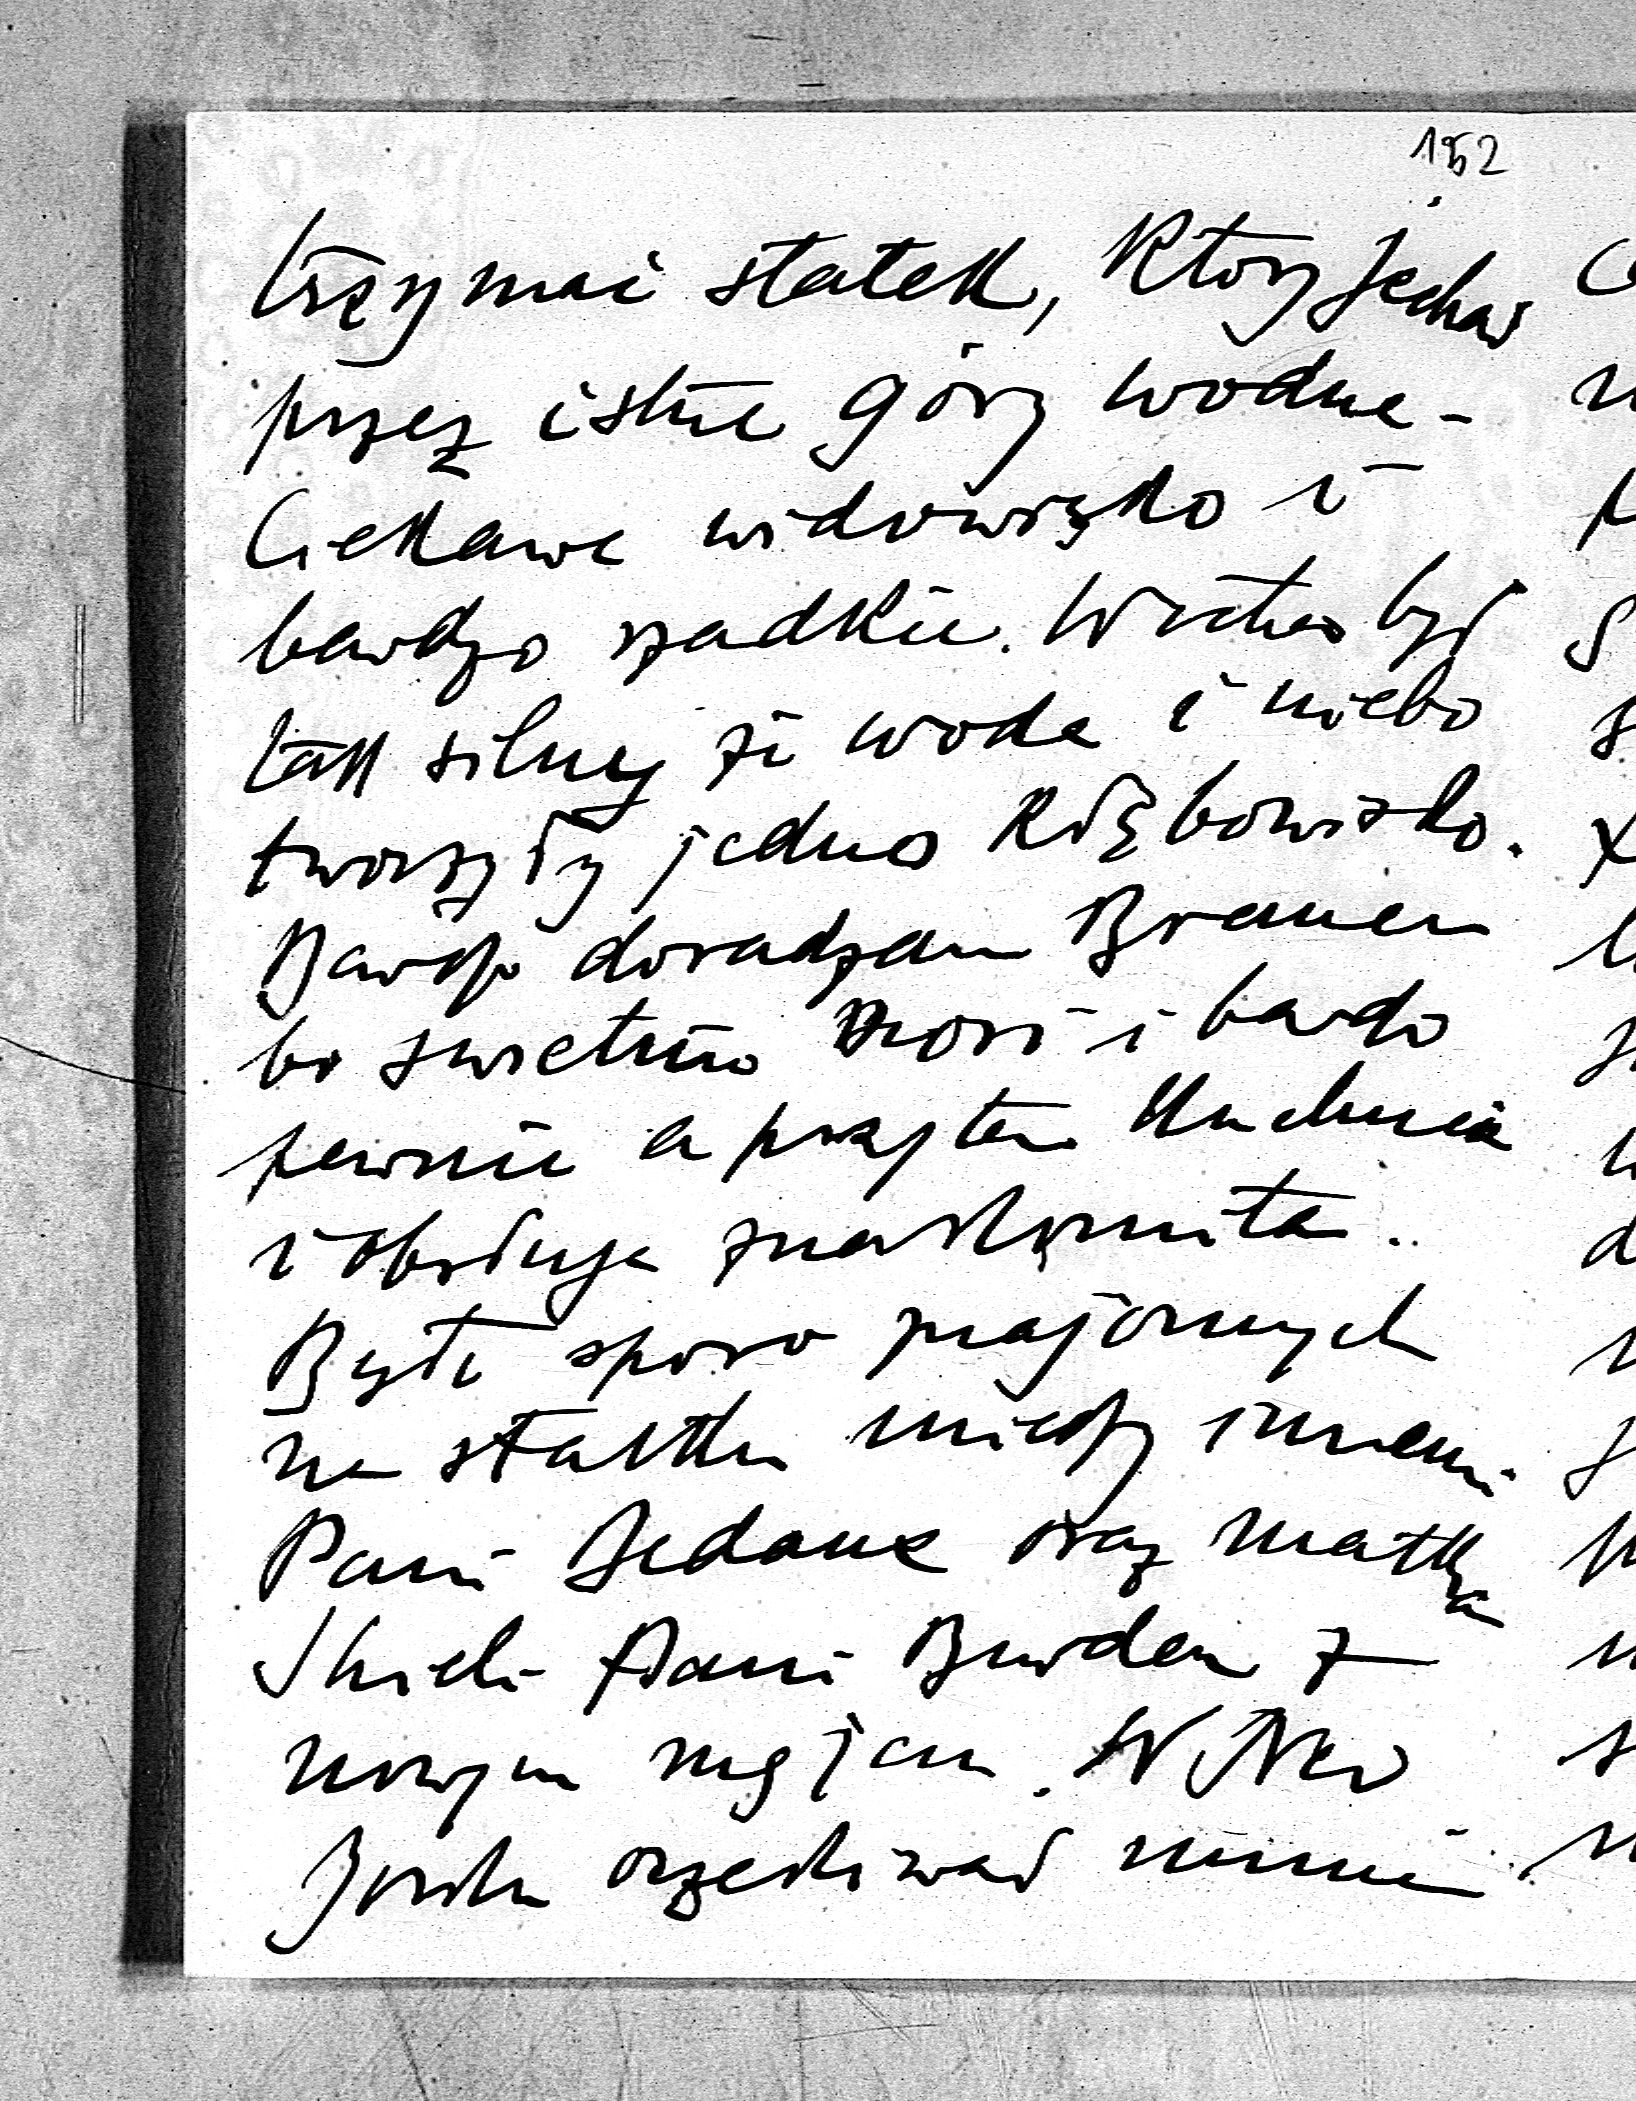 152
trzymać statek, który jechał
przez istne góry wodne -
Ciekawe widowisko i
bardzo rzadkie. Wicher był
tak silny że woda i niebo
tworzyły jedno kłębowisko.
Bardzo doradzam Bremen
bo świetnie nosi i bardo
pewnie a przytem kuchnia
i obsługa znakomita..
Było sporo znajomych
na statku miedzy innemi
Pani Sedane oraz matka
Shieli Pani Burden z
nowym mężem. W New
Jorku oczekiwał mnie